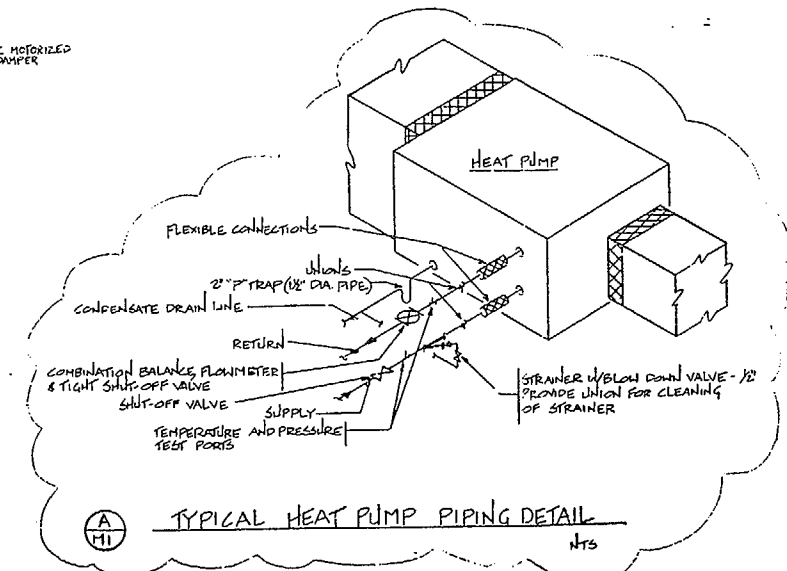 MOTORIZED
DAMPER
HEAT PUMP
FLEXIBLE CONNECTIONS
UNIONS
2" "P" TRAP (1½" DIA. PIPE)
CONDENSATE DRAIN LINE
RETURN
COMBINATION BALANCE, FLOWMETER
& TIGHT SHUT-OFF VALVE
SHUT-OFF VALVE
SUPPLY
TEMPERATURE AND PRESSURE
TEST PORTS
STRAINER W/BLOW DOWN VALVE - ½"
PROVIDE UNION FOR CLEANING
OF STRAINER
A
M1
TYPICAL HEAT PUMP PIPING DETAIL
NTS